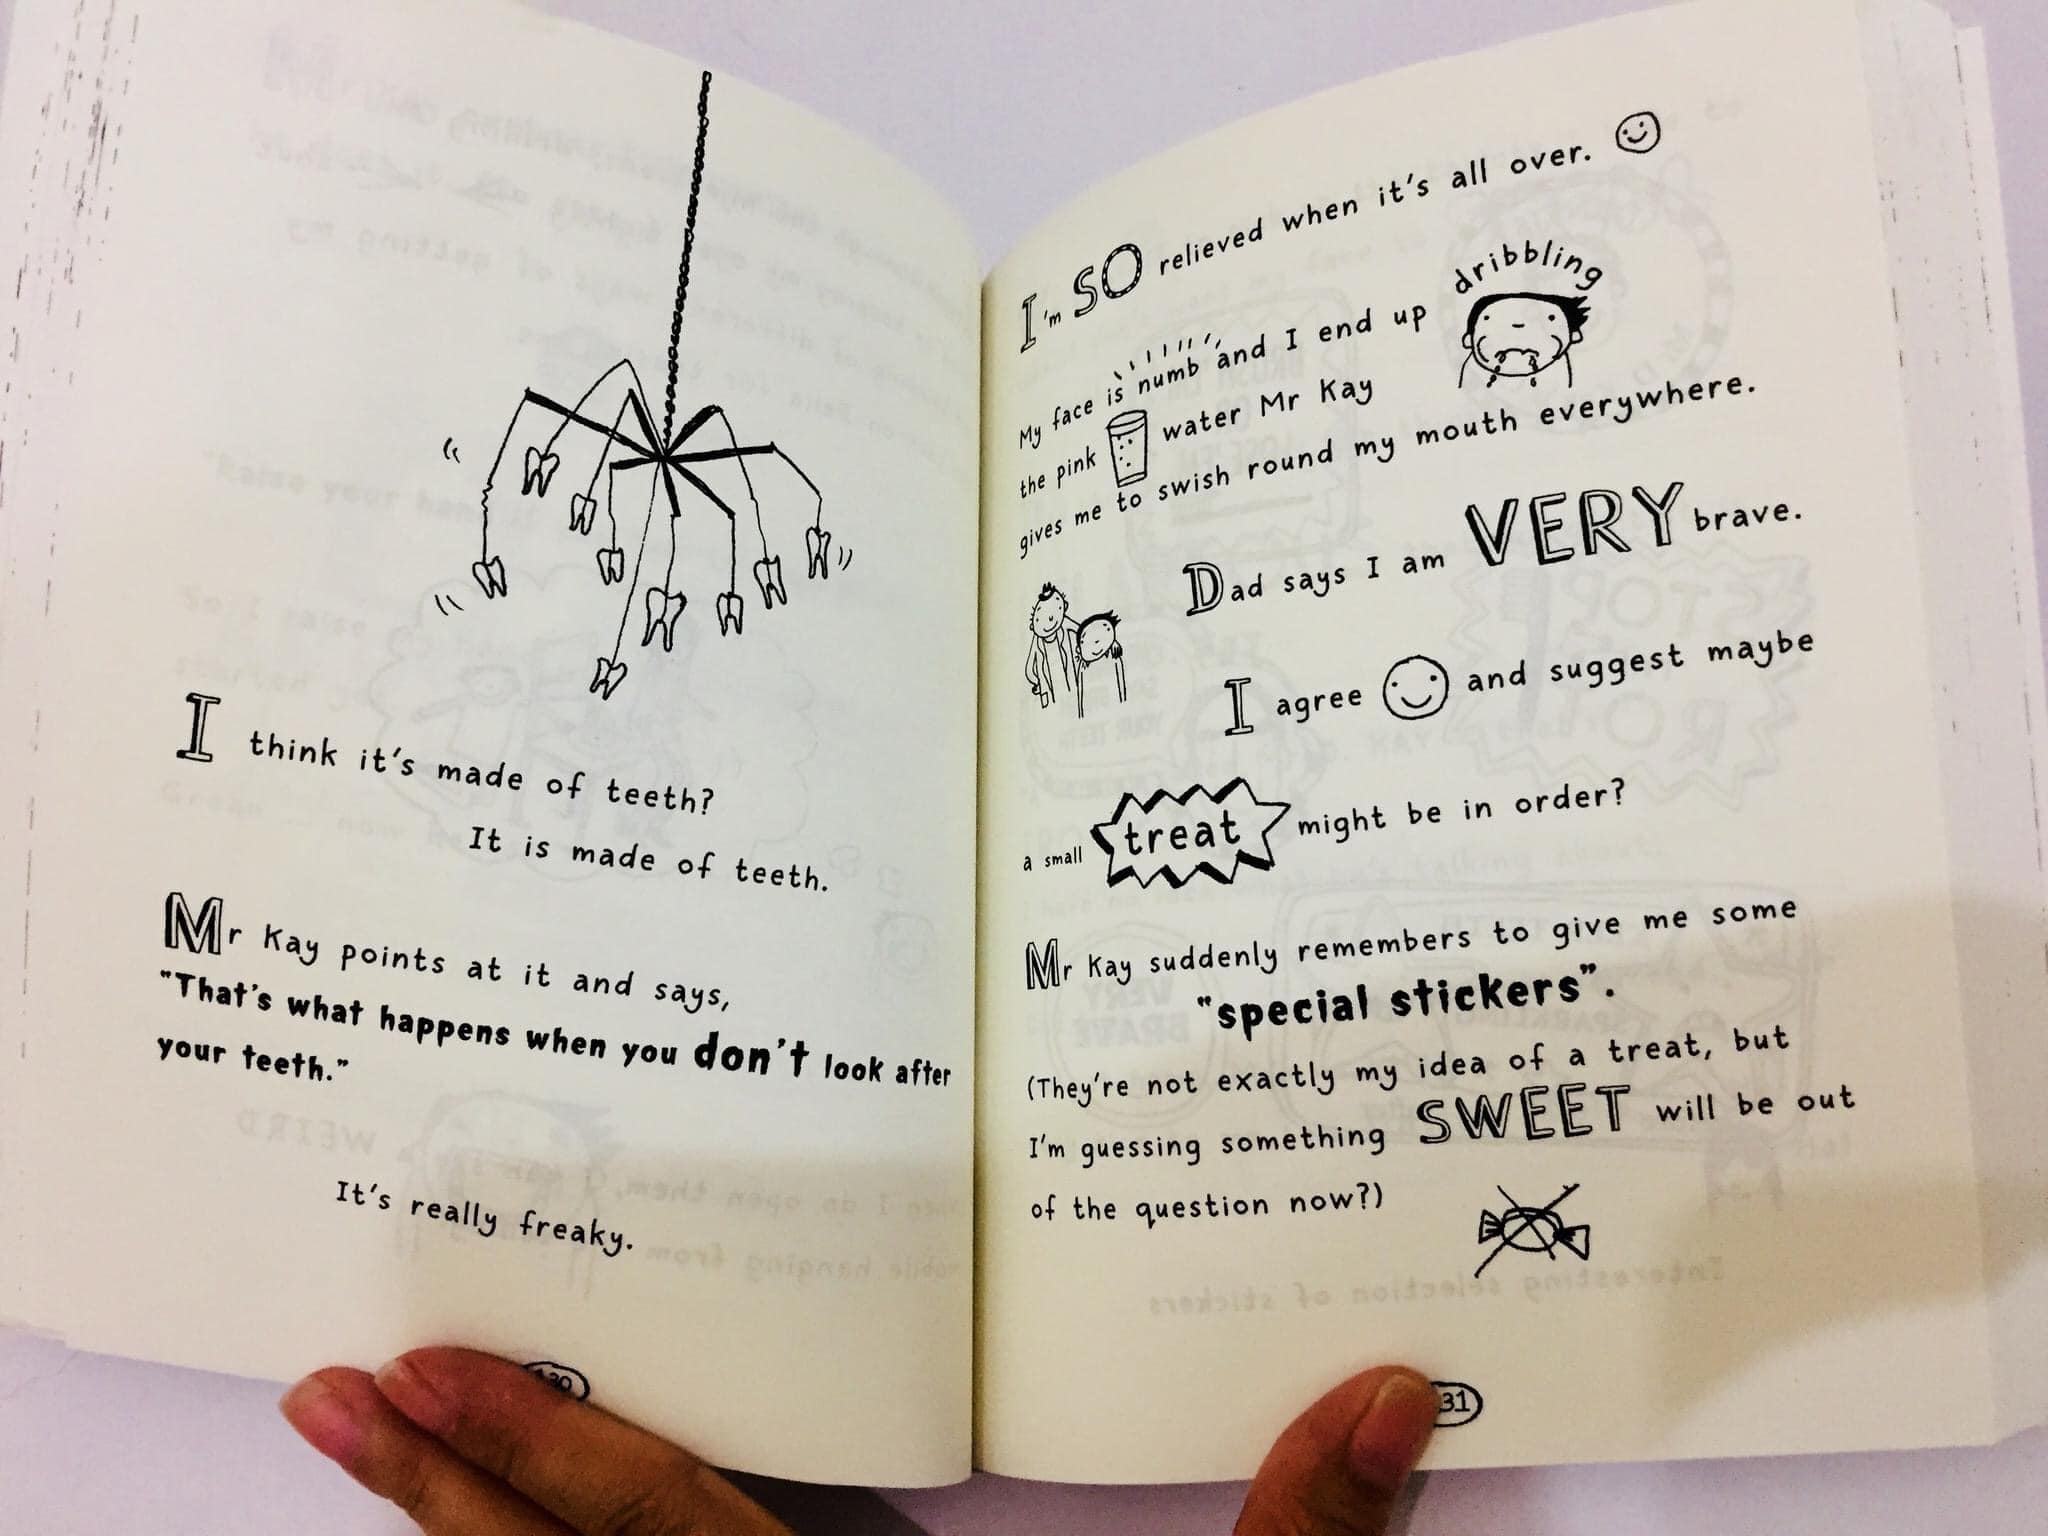 I think it's made of teeth?
It is made of teeth.
Mr Kay points at it and says,
"That's what happens when you don't look after
your teeth."
It's really freaky.
I'm SO relieved when it's all over.
My face is numb and I end up dribbling
the pink water Mr Kay
gives me to swish round my mouth everywhere.
Dad says I am VERY brave.
I agree and suggest maybe
a small treat might be in order?
Mr Kay suddenly remembers to give me some
"special stickers".
(They're not exactly my idea of a treat, but
I'm guessing something SWEET will be out
of the question now?)
31